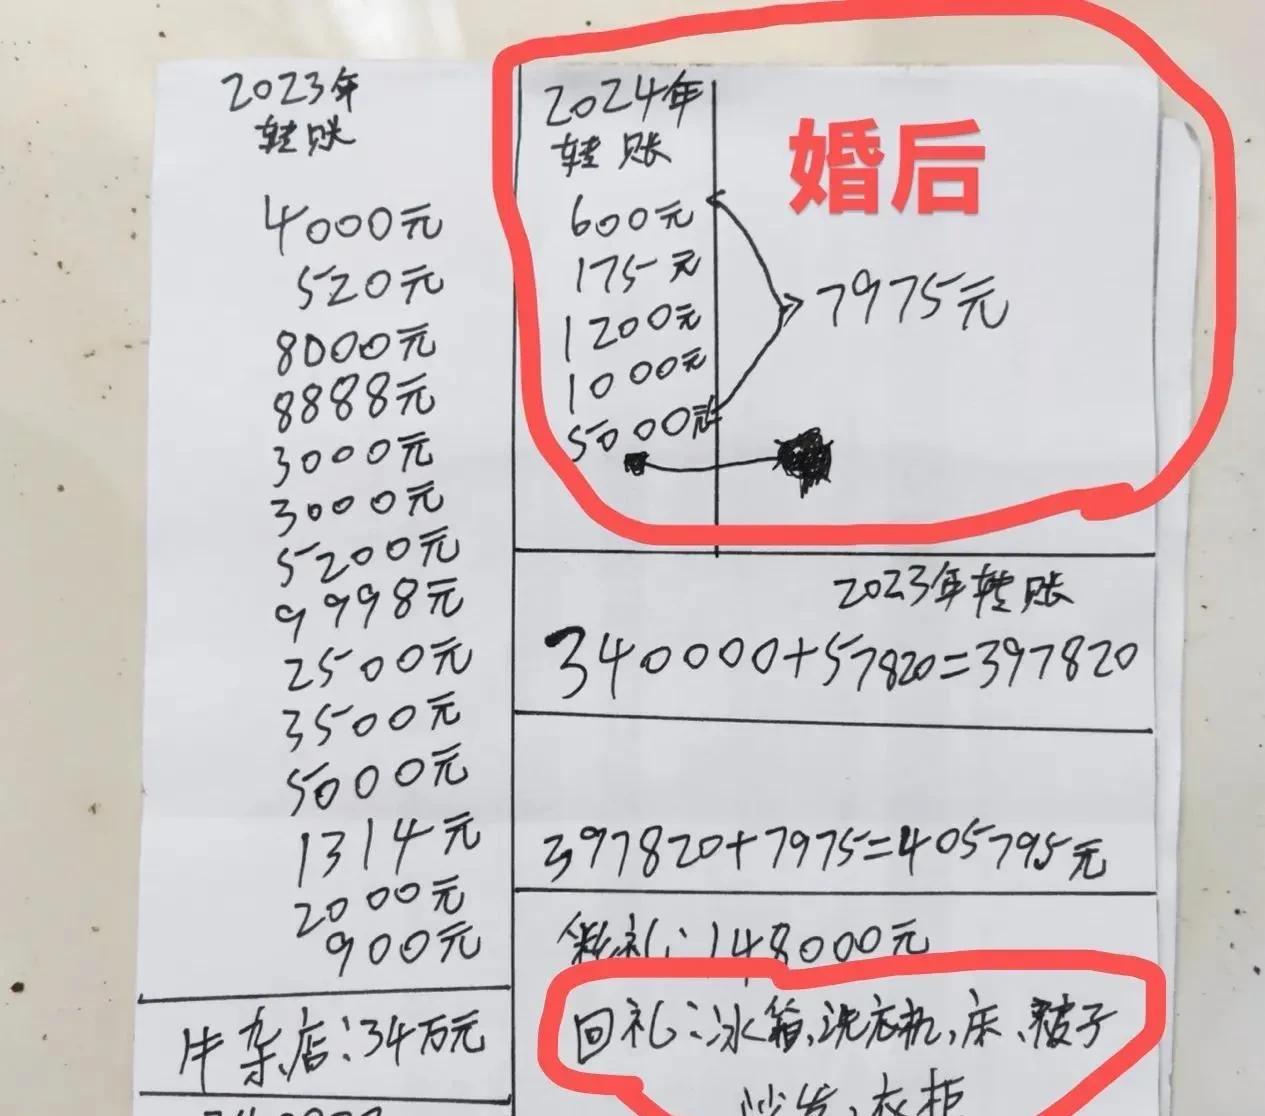 2023年
转账
4000元
520元
8000元
8888元
3000元
3000元
5200元
9998元
2500元
3500元
5000元
1314元
2000元
900元
牛杂店:34万元
2024年
转账
600元
175元
1200元
1000元
5000元
7975元
婚后
2023年转账
340000+57820=397820
397820+7975=405795元
彩礼:148000元
回礼:冰箱、洗衣机、床、被子
沙发、衣柜